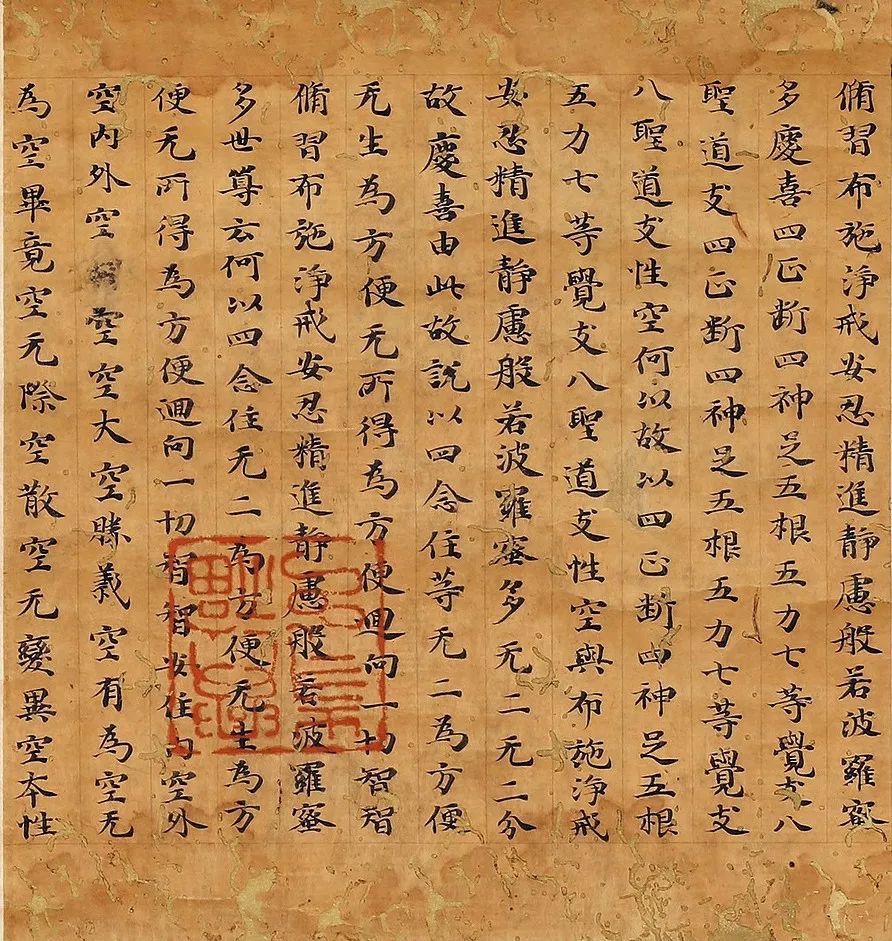 脩習布施淨戒安忍精進靜慮般若波羅蜜
多慶喜四正斷四神足五根五力七等覺支八
聖道支四正斷四神足五根五力七等覺支
八聖道支性空何以故以四正斷四神足五根
五力七等覺支八聖道支性空與布施淨戒
安忍精進靜慮般若波羅蜜多无二无二分
故慶喜由此故說以四念住等无二為方便
无生為方便无所得為方便迴向一切智智
脩習布施淨戒安忍精進靜慮般若波羅蜜
多世尊云何以四念住无二為方便无生為方
便无所得為方便迴向一切智智安住內空外
空內外空空空大空勝義空有為空无
為空畢竟空无際空散空无變異空本性